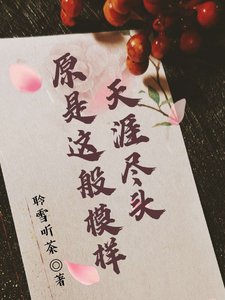 天涯尽头
原是这般模样
聆雪听茶◎著